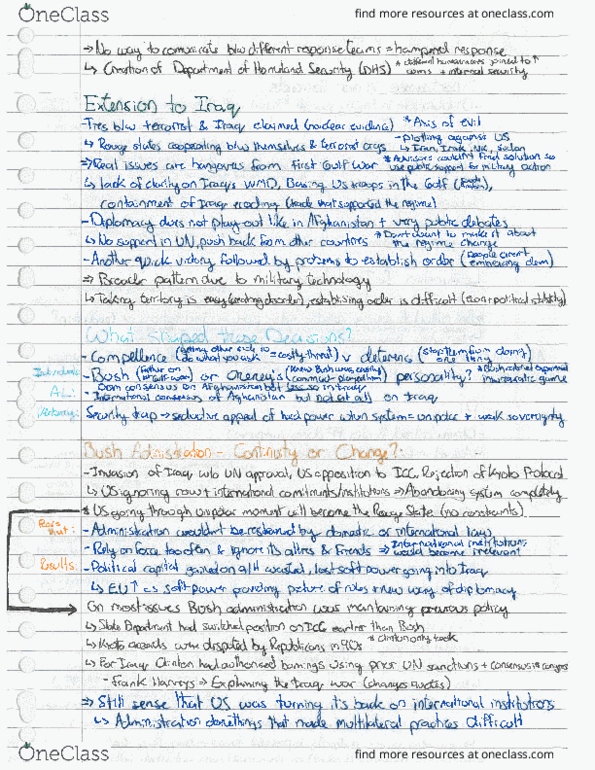 OneClass
find more resources at oneclass.com
→ No way to communicate b/w different response teams = hampered response
↳ Creation of Department of Homeland Security (DHS) * different bureaucracies joined to ↑ comms + internal security
Extension to Iraq
- Ties b/w terrorist & Iraq claimed (nuclear evidence) * Axis of evil
- plotting against US
↳ Rouge states cooperating b/w themselves & terrorist orgs ↳ Iran, Iraq, NK
⇒ Real issues are hangovers from First Gulf War * Advisors couldn't find solution so use public support for military action
↳ lack of clarity on Iraq's WMD, Basing US troops in the Gulf
containment of Iraq eroding (trade that supported the regime)
- Diplomacy does not play out like in Afghanistan + very public debates
↳ No support in UN, push back from other countries * Don't want to make it about the regime change
- Another quick victory followed by problems to establish order (people aren't embracing dem)
⇒ Broader pattern due to military technology
↳ Taking territory is easy (creating disorder), establishing order is difficult (econ + political stability)
What Shaped these Decisions?
- Compellence (getting other side to do what you ask = costly threat) v deterrence (stop them from doing one thing)
Individual: - Bush (Father on Gulf war) or Cheney's personality? * Bush not experienced in
Dom consensus on Afghanistan but less so in Iraq
- International consensus of Afghanistan but not at all on Iraq
Security trap → seductive appeal of hard power when system = unipolar + weak sovereignty
Bush Administration - Continuity or Change?:
- Invasion of Iraq w/o UN approval, US opposition to ICC, Rejection of Kyoto Protocol
↳ US ignoring norm + international commitments/institutions ⇒ Abandoning system completely
* US going through unipolar moment will become the Rouge State (no constraints).
Fears that: - Administration wouldn't be restrained by domestic or international law
- Rely on force too often & ignore its allies & friends ⇒ International institutions would become irrelevant
Results: - Political capital gained on 9/11 wasted, lost soft power going into Iraq
↳ EU ↑ as soft power providing picture of rules + new way of diplomacy
On most issues Bush administration was maintaining previous policy
↳ State Department had switched position on ICC earlier than Bush
↳ Kyoto accords were disputed by Republicans in 90s * Clinton only
↳ For Iraq, Clinton had authorised bombings using prior UN sanctions + consensus in congress
- Frank Harveys ⇒ Explaining the Iraq war (changes quotes)
⇒ Still sense that US was turning it's back on international institutions
↳ Administration do things that made multilateral practices difficult
OneClass
find more resources at oneclass.com